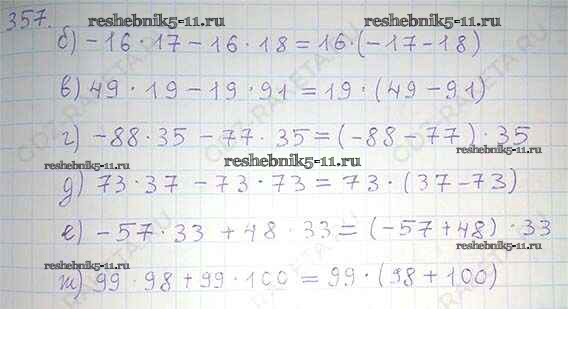 357.
reshebnik5-11.ru reshebnik5-11.ru
б) -16 · 17 - 16 · 18 = 16 · (-17 - 18)
в) 49 · 19 - 19 · 91 = 19 · (49 - 91)
г) -88 · 35 - 77 · 35 = (-88 - 77) · 35
reshebnik5-11.ru reshebnik5-11.ru
д) 73 · 37 - 73 · 73 = 73 · (37 - 73)
е) -57 · 33 + 48 · 33 = (-57 + 48) · 33
reshebnik5-11.ru reshebnik5-11.ru
ж) 99 · 98 + 99 · 100 = 99 · (98 + 100)